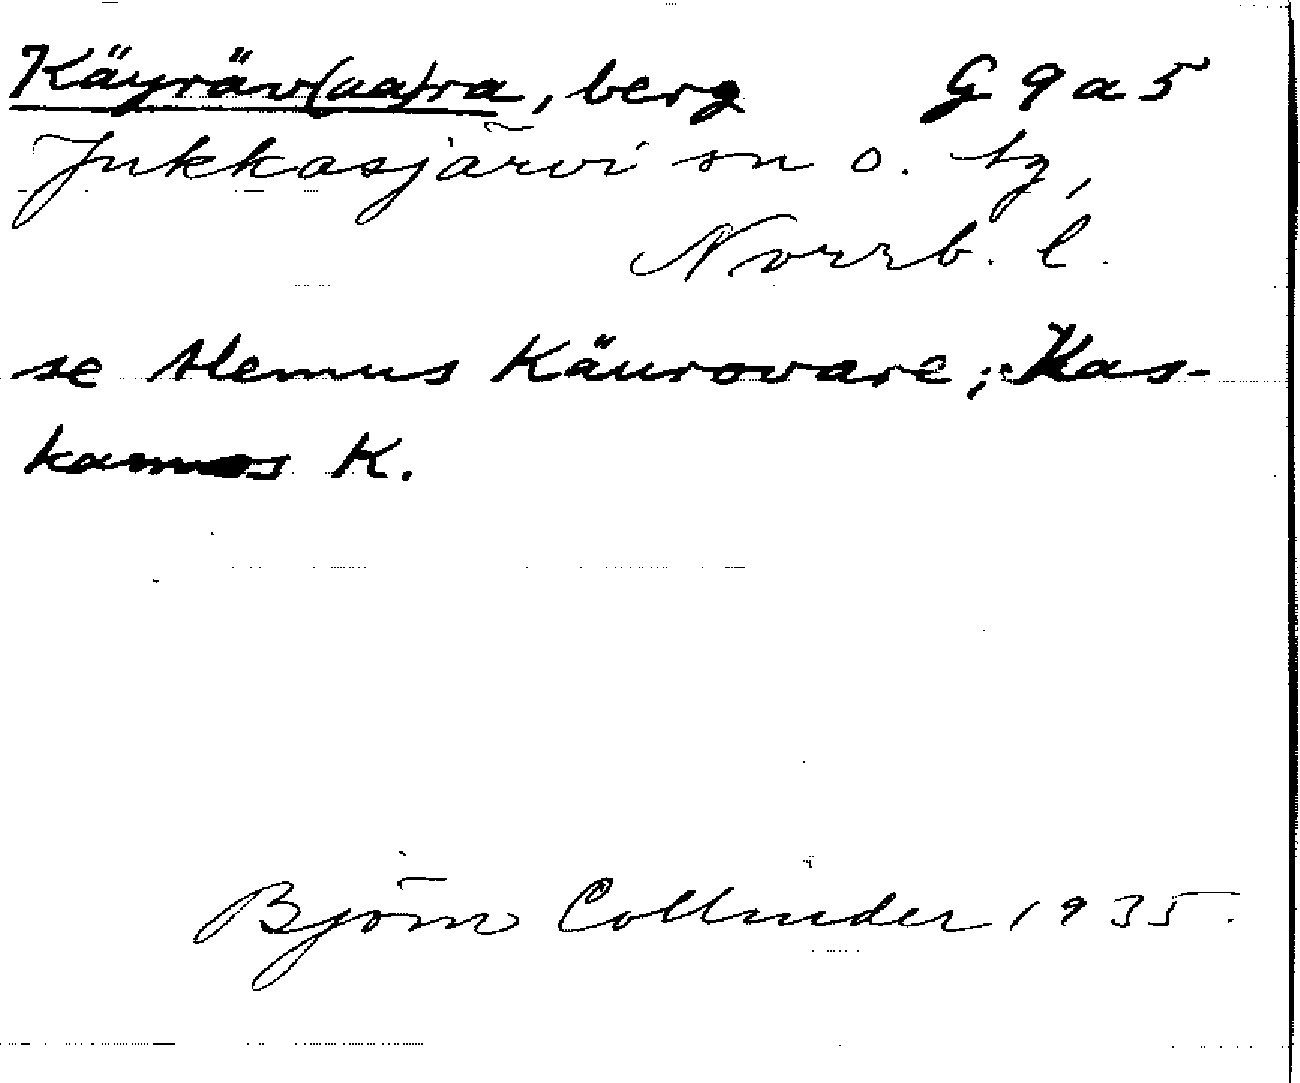 Käyräv(aa)ra, berg G 9 a 5
Jukkasjärvi sn o. tg,
Norrb. l.
se Alemus Käurovare; Kas-
kamus K.
Björn Collinder 1935.